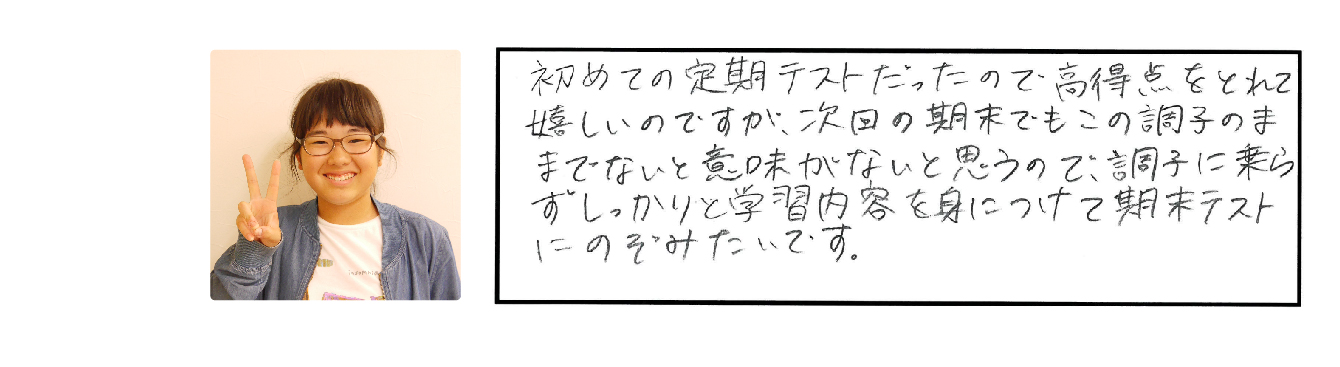 初めての定期テストだったので高得点をとれて
嬉しいのですが、次回の期末でもこの調子のま
までないと意味がないと思うので、調子に乗ら
ずしっかりと学習内容を身につけて期末テスト
にのぞみたいです。